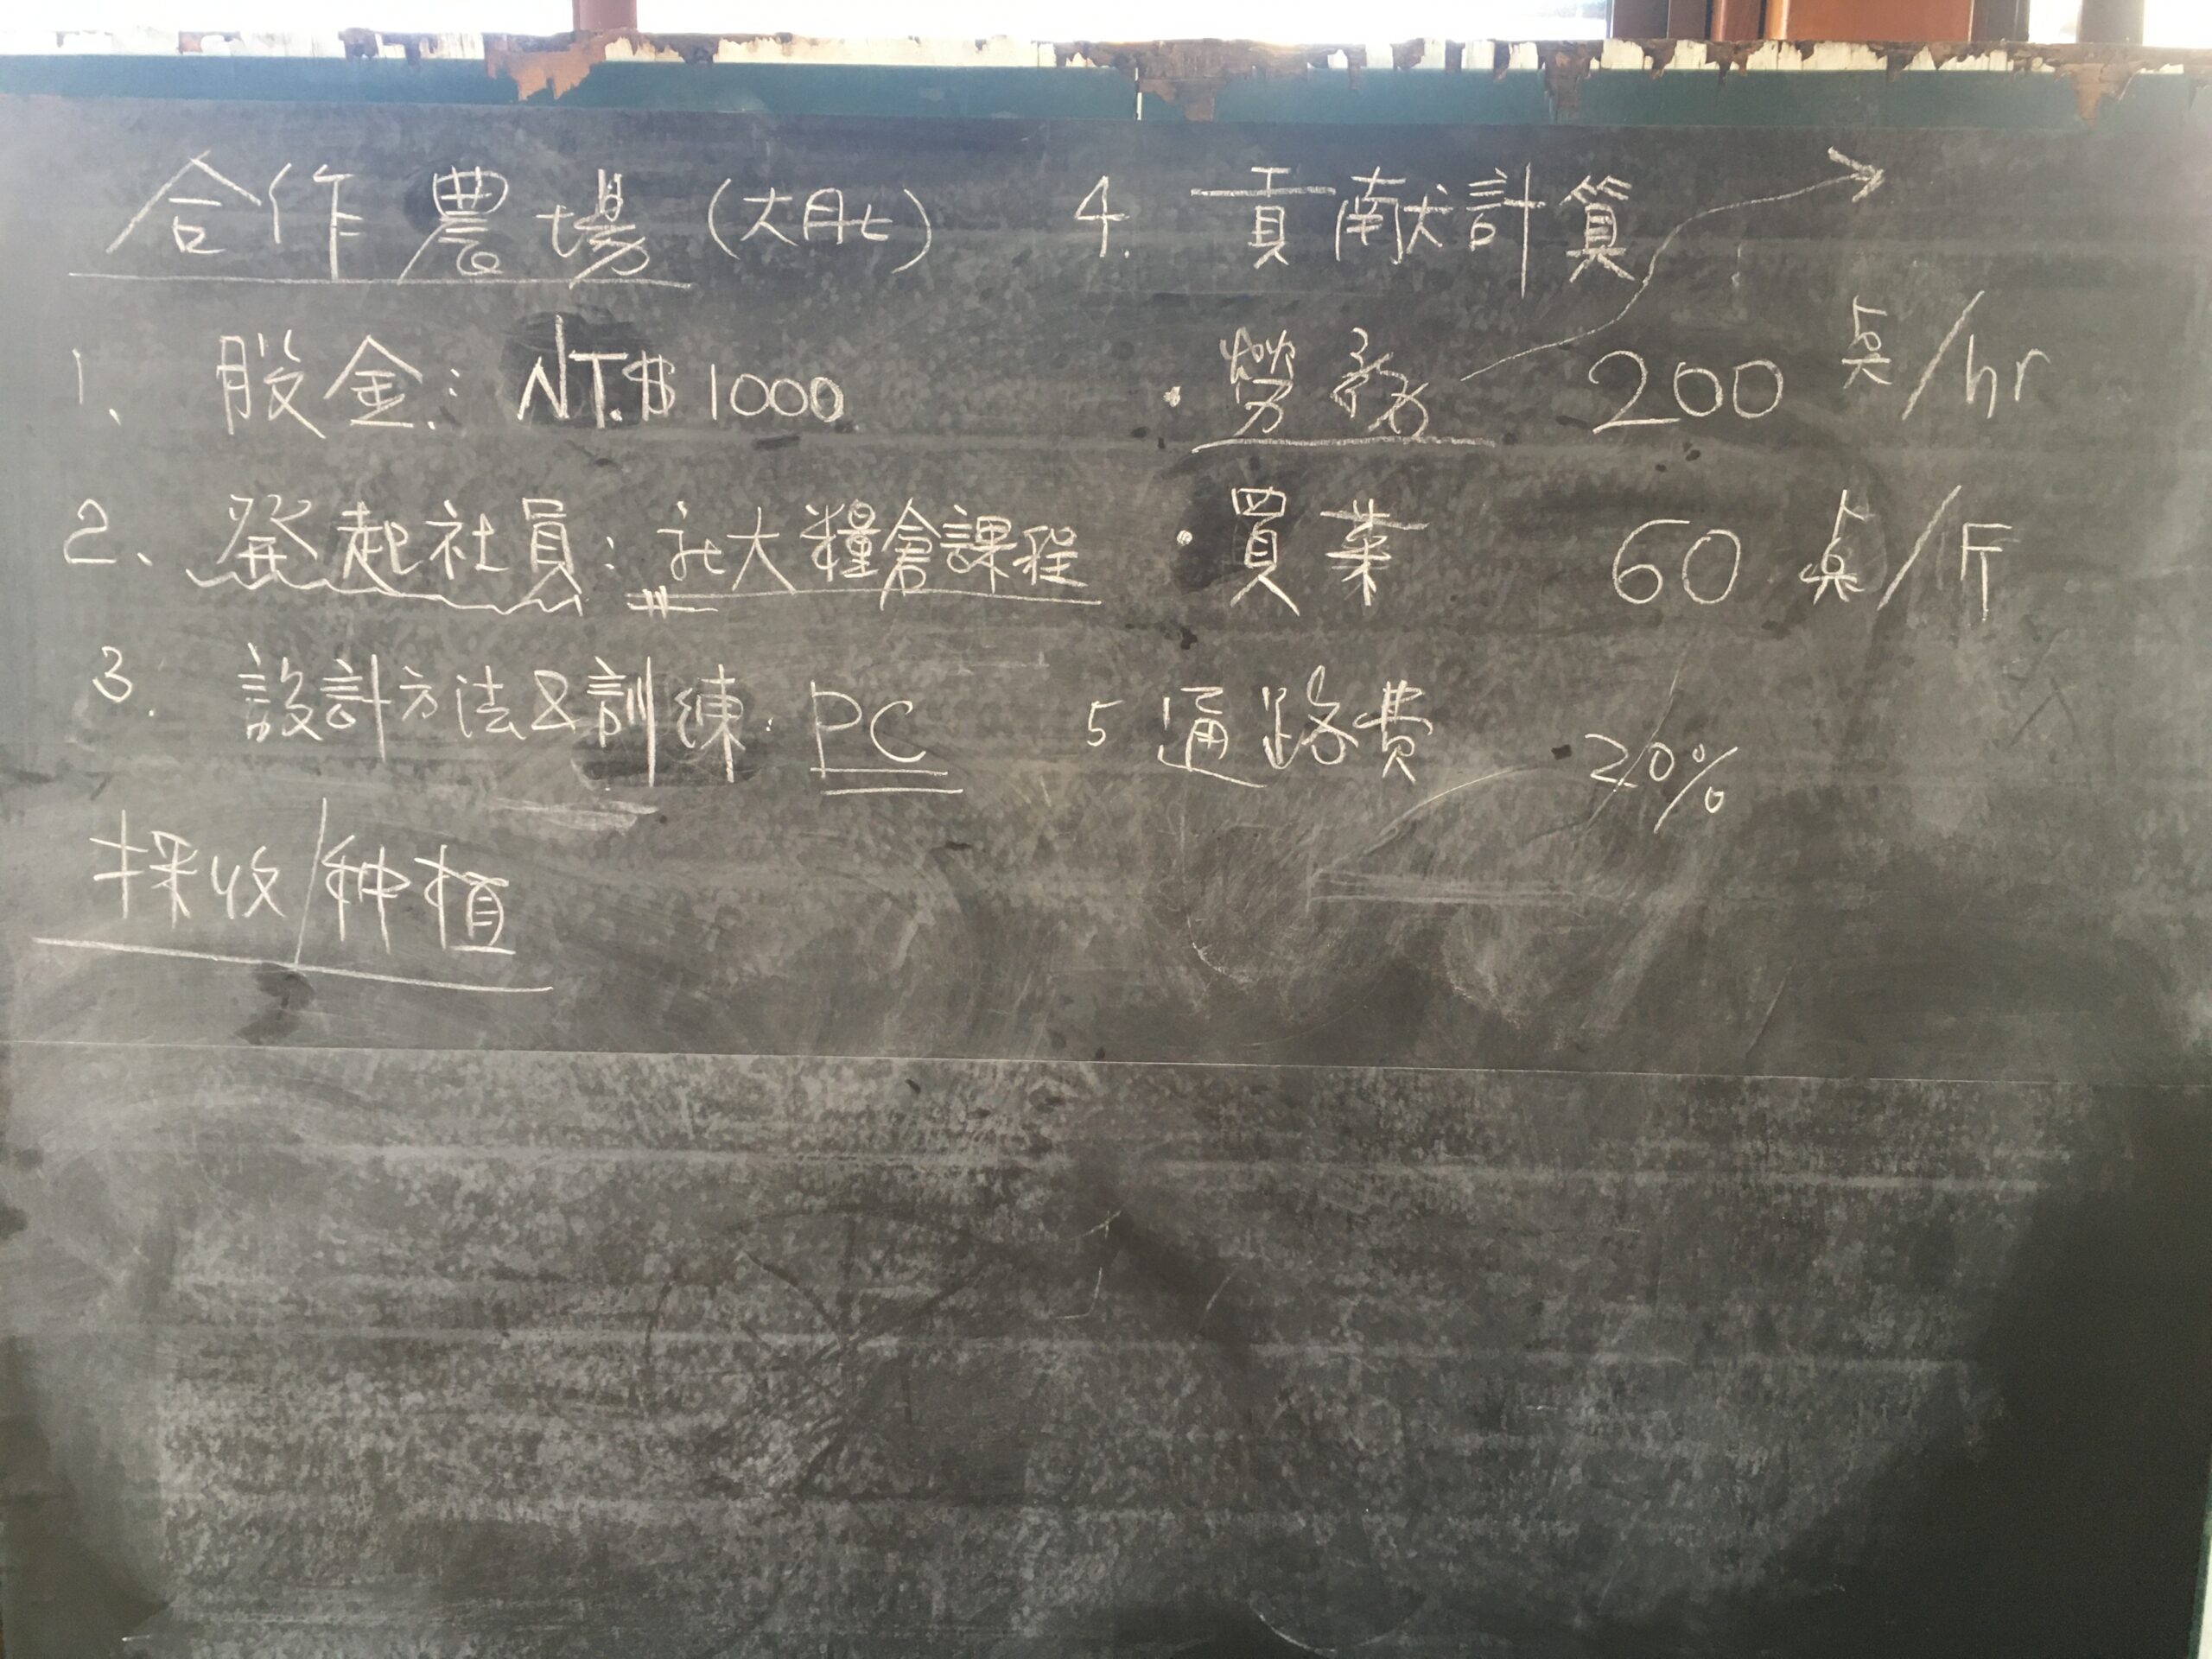 合作農場(大肚)
1、股金: NT.$ 1000
2、發起社員: 社大糧倉課程
3. 設計方法&訓練: PC
採收/种植
4. 貢献計算
·勞務 200 点/hr
·買菜 60 点/斤
5 通路費 20%